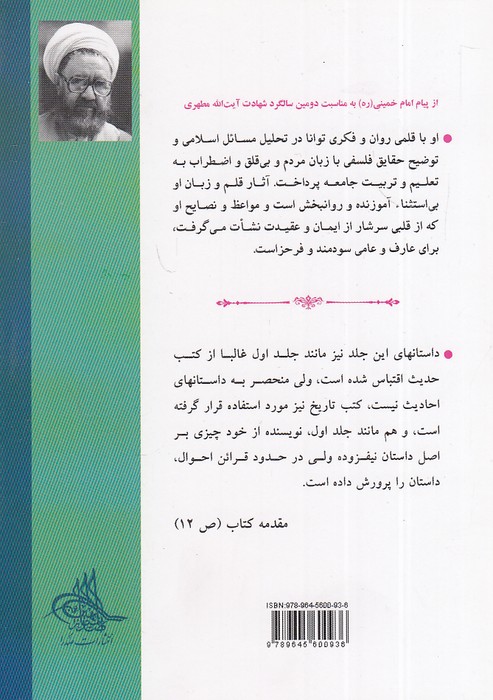 از پیام امام خمینی(ره) به مناسبت دومین سالگرد شهادت آیت‌الله مطهری
● او با قلمی روان و فکری توانا در تحلیل مسائل اسلامی و
توضیح حقایق فلسفی با زبان مردم و بی‌قلق و اضطراب به
تعلیم و تربیت جامعه پرداخت. آثار قلم و زبان او
بی‌استثناء آموزنده و روانبخش است و مواعظ و نصایح او
که از قلبی سرشار از ایمان و عقیدت نشأت می‌گرفت،
برای عارف و عامی سودمند و فرحزاست.
● داستانهای این جلد نیز مانند جلد اول غالبا از کتب
حدیث اقتباس شده است، ولی منحصر به داستانهای
احادیث نیست، کتب تاریخ نیز مورد استفاده قرار گرفته
است، و هم مانند جلد اول، نویسنده از خود چیزی بر
اصل داستان نیفزوده ولی در حدود قرائن احوال،
داستان را پرورش داده است.
مقدمه کتاب (ص ۱۲)
ISBN:978-964-5600-93-6
9 789645 600936
انتشارات صدرا